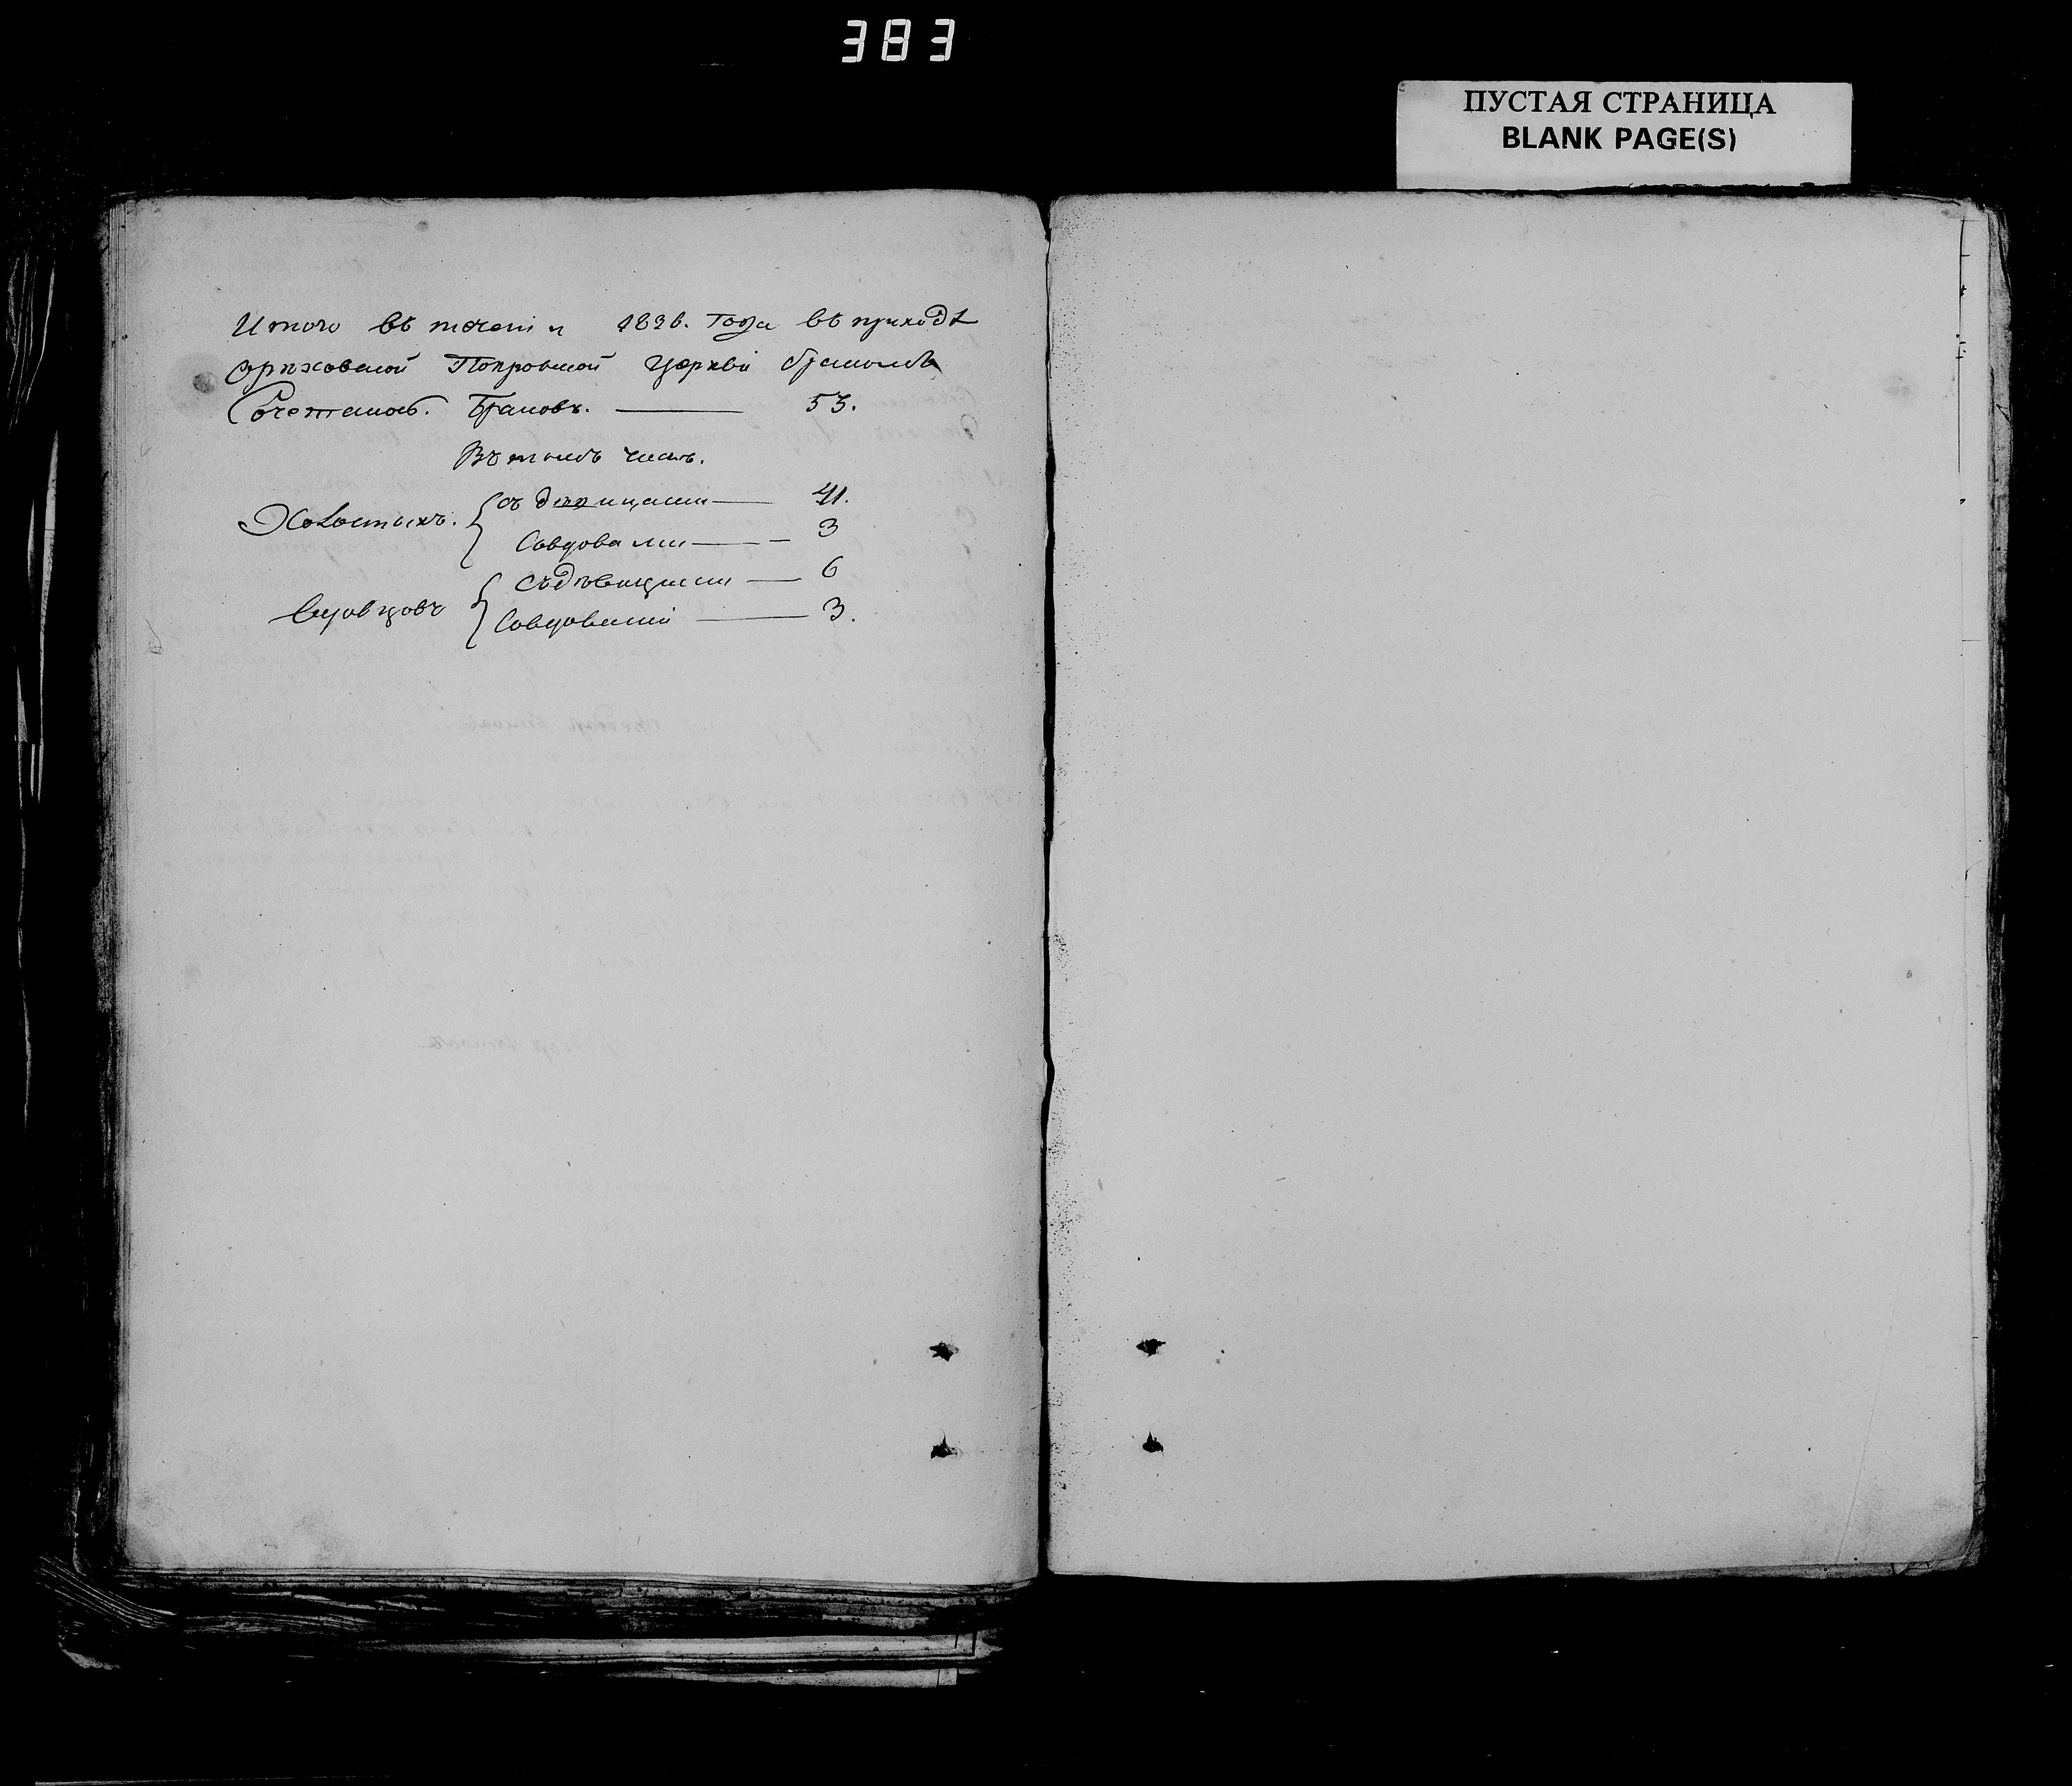 383
ПУСТАЯ СТРАНИЦА
BLANK PAGE(S)
Итого въ теченіи 1836. Года въ приходѣ
Орѣховской Покровской Церкви бракомъ
Сочетаніе. Браковъ. — 53.
Въ томъ числѣ.
Холостыхъ. { съ дѣвицами — 41.
Совдовами — 3
Вдовцовъ { съдѣвицами — 6
Совдовами — 3.